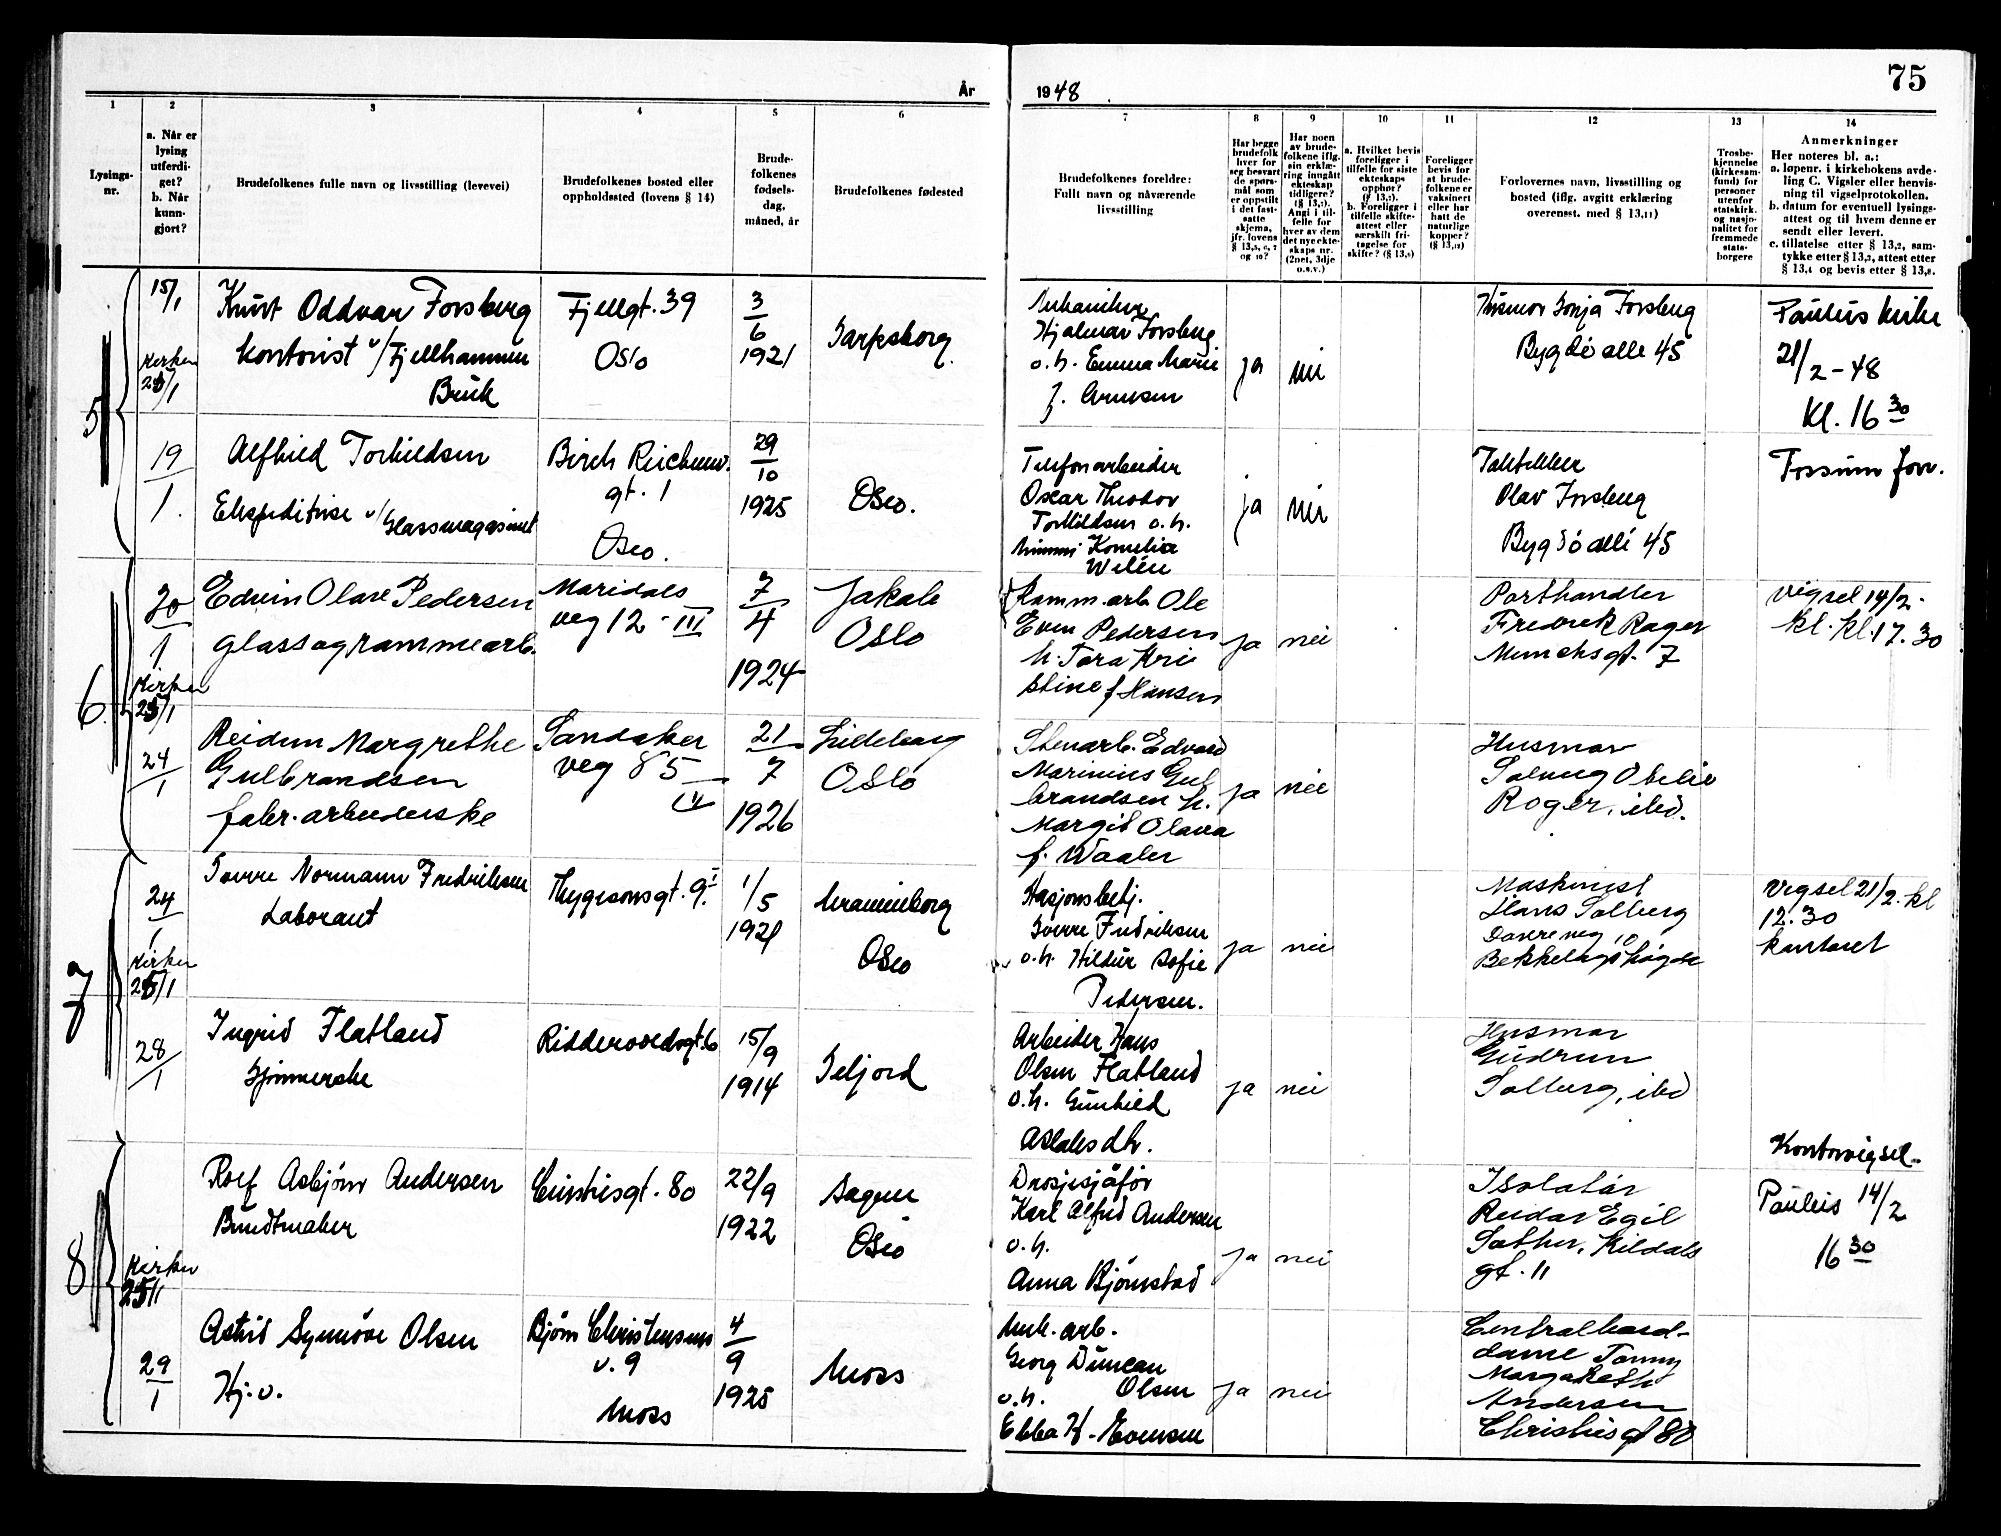 75
År
1948
1
2
3
4
5
6
7
8
9
10
11
12
13
14
Lysings-
nr.
a. Når er
lysing
utferdi-
get?
b. Når
kunn-
gjort?
Brudefolkenes fulle navn og livsstilling (levevei)
Brudefolkenes bosted eller
oppholdssted (lovens § 14)
Brude-
folkenes
fødsels-
dag,
måned, år
Brudefolkenes fødested
Brudefolkenes foreldre:
Fullt navn og nåværende
livsstilling
Har begge
brudefolk
hver for
seg besvart
de spørs-
mål som
er oppstilt
i det fast-
satte
skjema,
jfr. lovens
Har noen
av brude-
folkene iflg.
sin erklæ-
ring inngått
ekteskap
tidligere?
Angi i til-
felle for
hver av dem
det nye ekte-
skaps nr.
(2net, 3dje
o.s.v.)
a. Hvilket bevis
foreligger i
tilfelle for siste
ekteskaps
opphør?
b. Foreligger i
tilfelle skifte-
attest eller
særskilt fri-
tagelse for
skifte?
Foreligger
bevis for
at brude-
folkene er
vaksinert
eller har
hatt de
naturlige
kopper?
Forlovernes navn, livsstilling og
bosted (iflg. avgitt erklæring
overensst. med § 13,11)
Trosbe-
kjennelse
(kirkesam-
fund) for
personer
utenfor
statskirk.
og nasjo-
nalitet for
fremmede
stats-
borgere
Anmerkninger
Her noteres bl. a.:
a. løpenr. i kirkebokens avde-
ling C. Vigsler eller henvis-
ning til vigselprotokollen.
b. datum for eventuell lysings-
attest og til hvem denne er
sendt eller levert.
c. tillatelse etter § 13,2, sam-
tykke etter § 13,3, attest etter
§ 13,4 og bevis etter § 13,8.
5
15/1
Kirken
25/1
Kurt Oddvar Forsberg
kontorist v/Fjellhammer
Bruk
Fjellgt. 39
Oslo
3
6
1921
Sarpsborg.
Mekaniker
Hjalmar Forsberg
o.h. Emma Marie
f. Arnesen
ja
nei
Husmor Sonja Forsberg
Bygdø alle 45
Paulus kirke
21/2-48
Kl. 16 30
19
1.
Alfhild Torkildsen
Ekspeditrise v/Glassmagasinet
gt. 1
Oslo.
29
10
1925
Oslo.
Telefonarbeider
Oscar Theodor
Torkildsen o.h.
Mimmi Kornelia
Wilén
ja
nei
Olav Forsberg
Bygdø allé 45
Fossum forr.
6.
20
1.
Kirken
25/1
Edvin Olave Pedersen
glassogrammearb.
Maridals
veg 12 - III
7
4
1924
Jakob
Oslo
Komm.arb Ole
Even Pedersen
h. Tora Kri
stine f Hansen
ja
nei
Porthandler
Fredrik Roger
Munchsgt. 7
Vigsel 14/2.
kl. kl. 17.30
24
1
Reidun Margrethe
Gulbrandsen
fabr.arbeiderske
Sandaker
veg 85
IV
21
7
1926
Lilleborg
Oslo
Stenarb. Edvard
Marinius Gul
brandsen h.
Margit Olava
f. Waaler
ja
nei
Husmor
Solveig Otelie
Roger, ibd.
7
24
1
Kirken
25/1
Sverre Normann Fredriksen
Laborant
Thygesonsgt. 9 I.
1/5
1921
Oslo
Stasjonsbetj.
Sverre Fredriksen
o.h. Hildur Sofie
Pedersen.
ja
nei
Maskinist
Hans Solberg
Dovreveg 10
Bekkelagshøgda
Vigsel 21/2. kl
12.30
kontoret
28
1
Ingrid Flatland
Syerske
Riddervoldsgt. 6
15/9
1914
Seljord
Arbeider Hans
Olsen Flatland
o.h. Gunhild
Aslaksdtr.
ja
nei
Husmor
Gudrun
Solberg, ibd
8
Kirken
25/1
Rolf Asbjørn Andersen
Buntmaker
Christiesgt. 80
22/9
1922
Sagene
Oslo
Drosjesjåfør
Karl Alfred Andersen
o.h.
Anna Bjørnstad
ja
nei
Isolatør
Reidar Egil
Sæther, Kildals
gt. 11
Kontorvigsel.
Paulus 14/2
16 30
29
1
Astrid Synnøve Olsen
Hj.v.
Bjørn Christensens
v. 9
Moss
4
9
1925
Moss
Mek. arb.
Georg Duncan
Olsen
o.h.
Ebba K. Evensen
ja
nei
Centralbord-
dame Tommy
Margarethe
Andersen
Christies gt 80